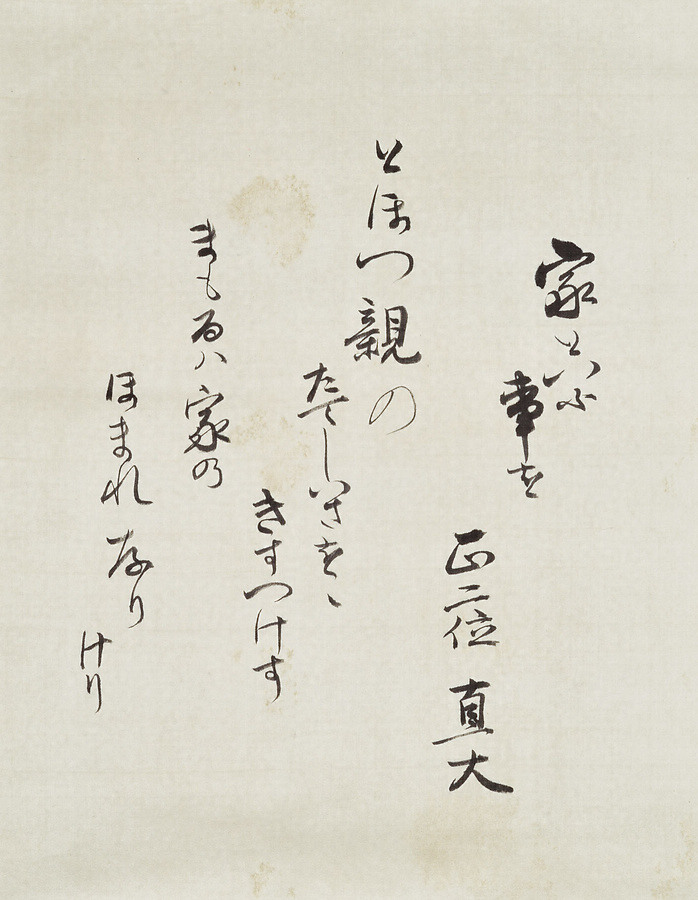 家といふ
事を
正二位 直大
とほつ親の
たてしいさをゝ
きすつけす
まもるハ家の
ほまれなり
けり